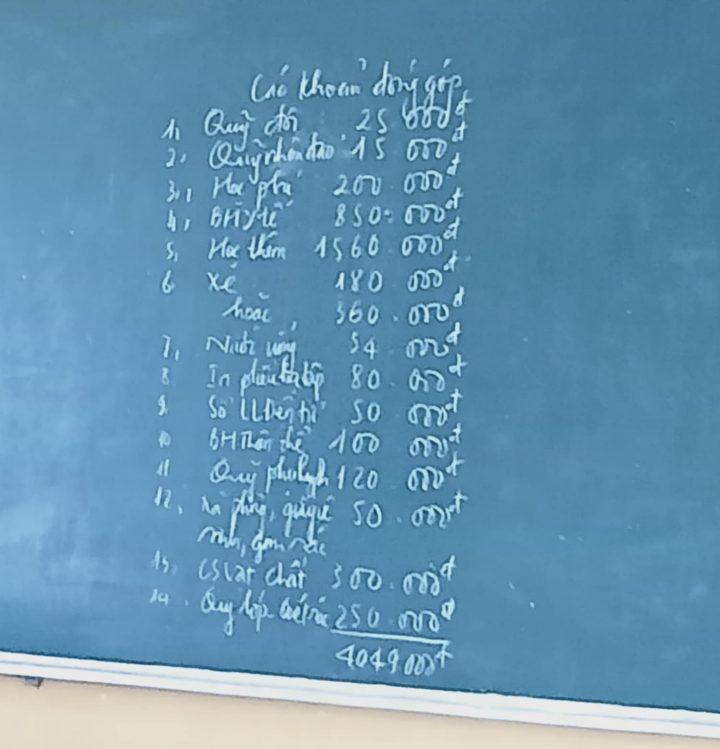 Các khoản đóng góp
1, Quỹ đội 25 000đ
2, Quỹ nhân đạo 15 000đ
3, Học phí 200.000đ
4, BHY tế 850.000đ
5, Học thêm 1560.000đ
6 Xe 180.000đ
hoặc 360.000đ
7, Nước uống 54.000đ
8 In phiếu bài tập 80.000đ
9 Sổ LL điện tử 50 000đ
10 BH thân thể 100 000đ
11 Quỹ phụ huynh 120.000đ
12, Xà phòng, giấy vệ 50.000đ
sinh, gom rác
13, CSVật chất 300.000đ
14. Quỹ lớp 250.000đ
4049000đ